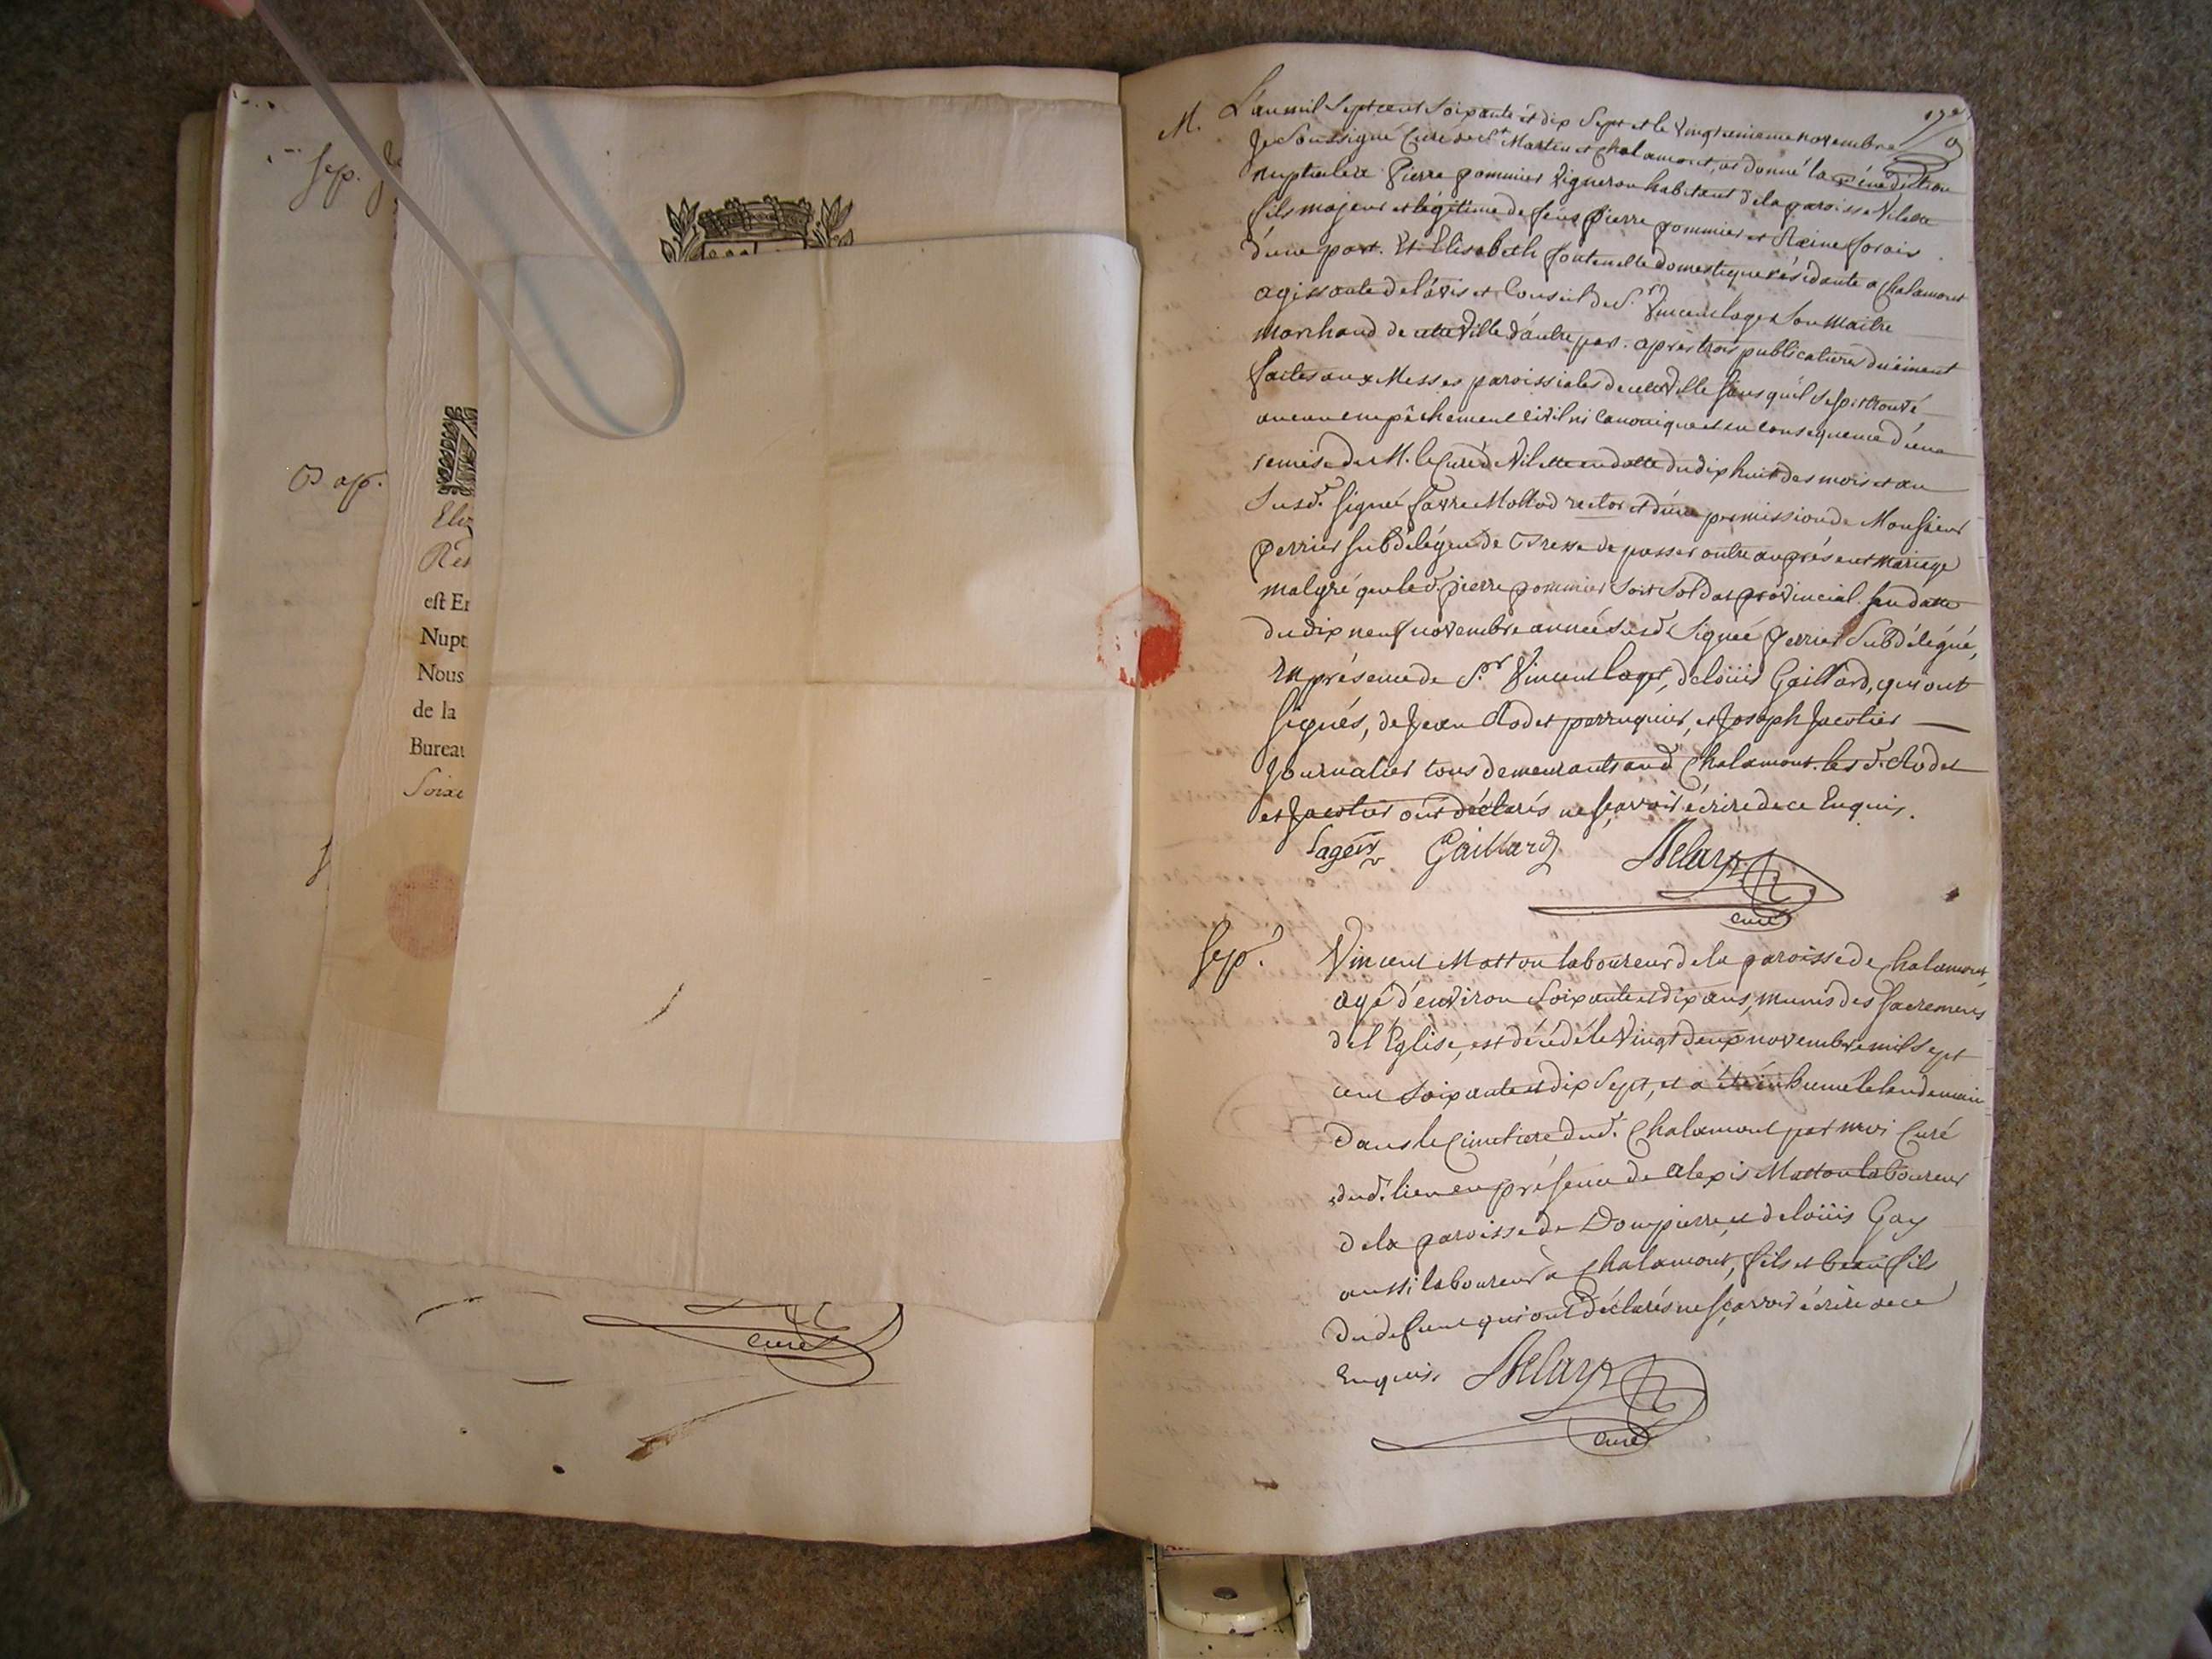 Sep.
Bap.
Eliz
est En
Nupt
Nous
de la
Bureau
Soixe
curé
M. L'an mil Sept cent Soixante et dix Sept et le Vingt novembre
Je Soussigné Curé de St Martin et Chalamont, ai donné la Bénédiction
nuptiale à Pierre pommier Vigneron habitant de la paroisse Vilette
fils majeur et légitime de feus pierre pommier et Reine forais
d'une part. Et Elisabeth fontenelle domestique résidante a Chalamont
agissante de l'avis et Conseil de Sr. Vincent lager Son Maitre
marchand de cette Ville d'autre part. après trois publications duëment
faites aux Messes paroissiales de cette Ville sans qu'il se soit trouvé
aucun empêchement civil ni Canonique et en consequence d'une
remise de M. le Curé de Vilette en datte du dix huit des mois et an
Susd. signé favre Mollod rector et d'une permission de Monsieur
perrier subdélégué de Bresse de passer outre au présent Mariage
malgré que led. pierre pommier Soit Soldat provincial. en datte
du dix neuf novembre année Susd. Signée perrier Subdélégué,
En présence de Sr. Vincent lager, de loüis Gaillard, qui ont
signés, de Jean Clodet perruquier, et Joseph Jacolier
Journalier tous demeurants aud. Chalamont. les d. Clodet
et Jacolier ont déclarés ne sçavoir écrire de ce Enquis.
Lager Gaillard Delarx
curé
Sep. Vincent Matton laboureur de la paroisse de Chalamont,
agé d'environ Soixante et dix ans, munis des sacremens
de l'Eglise, est décédé le Vingt deux novembre mil Sept
cent Soixante et dix Sept, et a été inhumé le lendemain
Dans le Cimetiere dud. Chalamont par moi Curé
dud. lieu en présence de Alexis Matton laboureur
de la paroisse de Dompierre, et de loüis Gay
aussi laboureur à Chalamont, fils et beau fils
du defunt qui ont déclarés ne sçavoir écrire de ce
Enquis.
curé